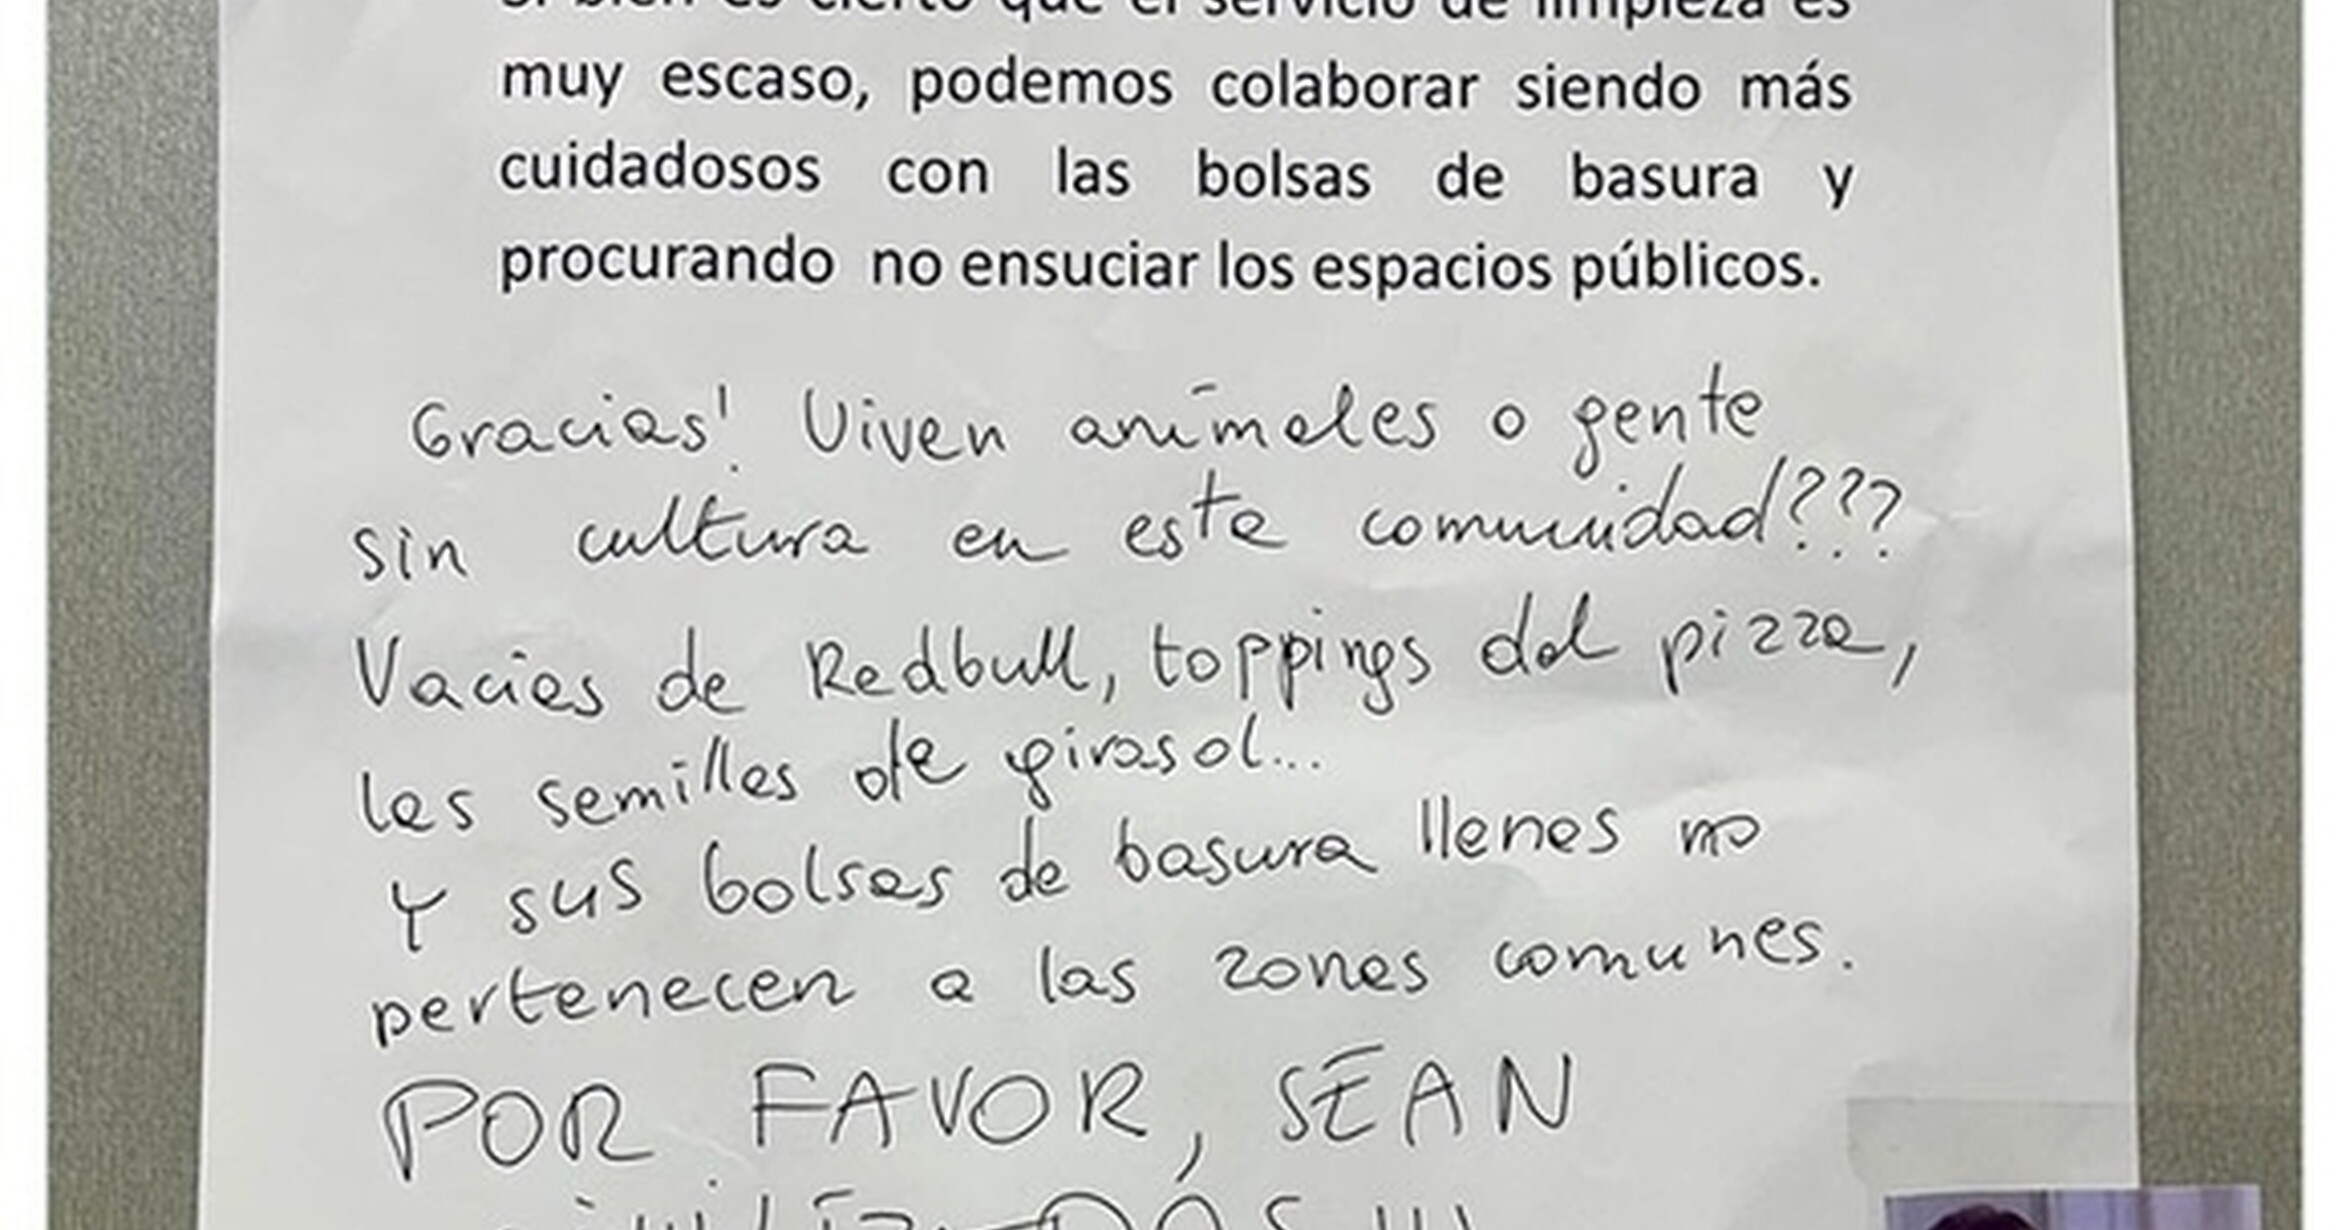 Si bien es cierto que el servicio de limpieza es
muy escaso, podemos colaborar siendo más
cuidadosos con las bolsas de basura y
procurando no ensuciar los espacios públicos.
Gracias! Viven animales o gente
sin cultura en esta comunidad???
Vacias de Redbull, toppings del pizza,
las semillas de girasol...
Y sus bolsas de basura llenas no
pertenecen a las zonas comunes.
POR FAVOR, SEAN
CIVILIZADOS !!!